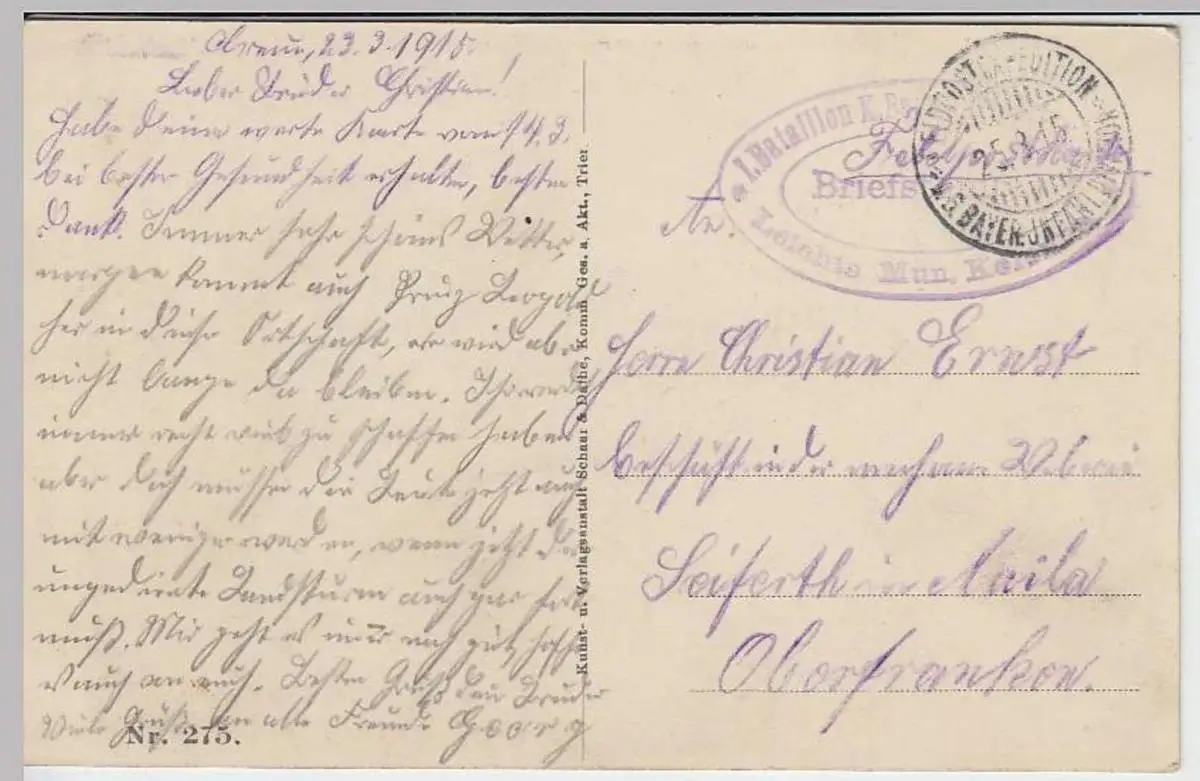 23.3.1915.
Lieber Bruder Christian!
Habe deine werte Karte vom 14.3.
bei bester Gesundheit erhalten, besten
Dank. Immer sehr schönes Wetter,
morgen kommt auch Prinz Leopold
her in diese Ortschaft, er wird aber
nicht lange da bleiben. Ihr werdet
immer recht viel zu schaffen haben
aber doch müssen die Leute jetzt auch
mit weniger werden, wenn jetzt der
ungediente Landsturm auch gar fort
muß. Mir geht es immer noch gut, hoffe
auch von euch. Besten Gruß dein Bruder
Viele Grüße an alle Freunde Georg
Nr. 275.
Kunst- u. Verlagsanstalt Schaar & Dathe, Komm. Ges. a. Akt., Trier
FELDPOSTEXPEDITION
25.3.15
BAYER. INFANT.
I. Bataillon K. Ba
Briefs
Leichte Mun. Kol
Feldpostkarte
An
Herrn Christian Ernst
beschäft in der mechan Weberei
Seiferth in Naila
Oberfranken.